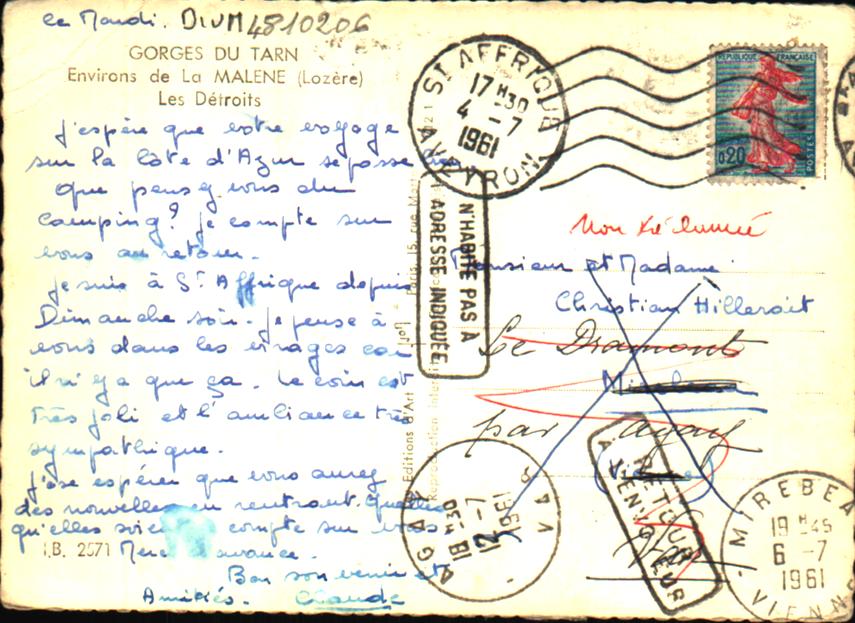 ce Mardi. DIVM4810206
GORGES DU TARN
Environs de La MALENE (Lozère)
Les Détroits
J'espère que votre voyage
sur la Côte d'Azur se passe
que pensez vous du
camping? je compte sur
vous au retour.
je suis à St Affrique depuis
Dimanche soir. je pense à
vous dans les virages car
il n'y a que ça. Le coin est
très joli et l'ambiance très
sympathique.
J'ose espérer que vous aurez
des nouvelles en rentrant. Quelles
qu'elles soient compte sur vous
I.B. 2571 Merci d'avance.
Bon souvenir et
Amitiés. Claude
Editions d'Art
Paris, 15, rue
Reproduction
ST AFFRIQUE
17 H30
4 -7
1961
AVEYRON
REPUBLIQUE FRANÇAISE
0,20
POSTES
N'HABITE PAS A
ADRESSE INDIQUÉE
Non réclamé
Monsieur et Madame
Christian Hilleroit
Le Dramont
par Agay
Var
AGAY
18 H30
12 -7
1961
VAR
RETOUR
A L'ENVOYEUR
MIREBEA
19 H45
6 -7
1961
VIENNE